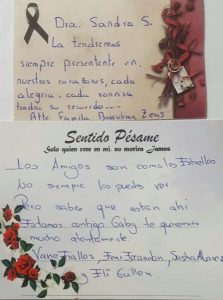 Dra. Sandra S.
La tendremos
siempre presente en
nuestros corazones, cada
alegria, cada sonrisa
tendra su recuerdo...
Atte. Familia Zeus
Sentido Pésame
Solo quien cree en mi, no morira Jamas
Los Amigos son como las Estrellas
No siempre los puedes ver
Pero sabes que estan ahi
Estamos contigo Gaby te queremos
mucho atentamente:
Vane Fiallos, Brandon,
y Eli Guillen